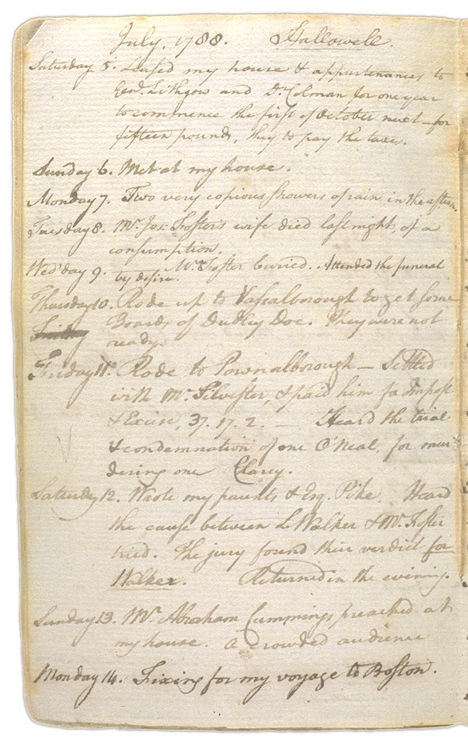 July, 1788. Hallowell.
Saturday 5. Leased my house & appurtenances to
Genl. Lithgow and Dr. Colman for one year
to commence the first of October next—for
fifteen pounds, they to pay the taxes.
Sunday 6. Met at my house.
Monday 7. Two very copious showers of rain in the aftern.
Tuesday 8. Mr. Jos. Foster's wife died last night, of a
consumption.
Wed'day 9. Mrs. Foster buried. Attended the funeral
by desire.
Thursday 10. Rode up to Vassalborough to get some
Boards of Dudley Doe. They were not
ready.
Friday 11. Rode to Pownalborough — Settled
with Mr. Silvester & paid him for Impost
& Excise, 37. 17. 2. — Heard the trial
& condemnation of one O'Neal, for mur
dering one Clarey.
Saturday 12. Wrote my parents & Esq. Pike. Heard
the cause between L Walker & Mr. Foster
tried. The jury found their verdict for
Walker. Returned in the evening.
Sunday 13. Mr. Abraham Cummings preached at
my house. A crowded audience
Monday 14. Fixing for my voyage to Boston.